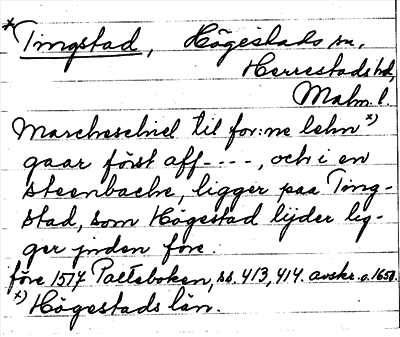 *Tingstad, Högestads sn,
Herrestads hd,
Malm. l.
Marcheschiel til for:ne lehn x)
gaar först aff----, och i en
steenbache, ligger paa Ting-
stad, som Högestad lijder lig-
ger jnden fore.
före 1517 Palteboken, ss. 413, 414. avskr. c. 1650.
x) Högestads län.